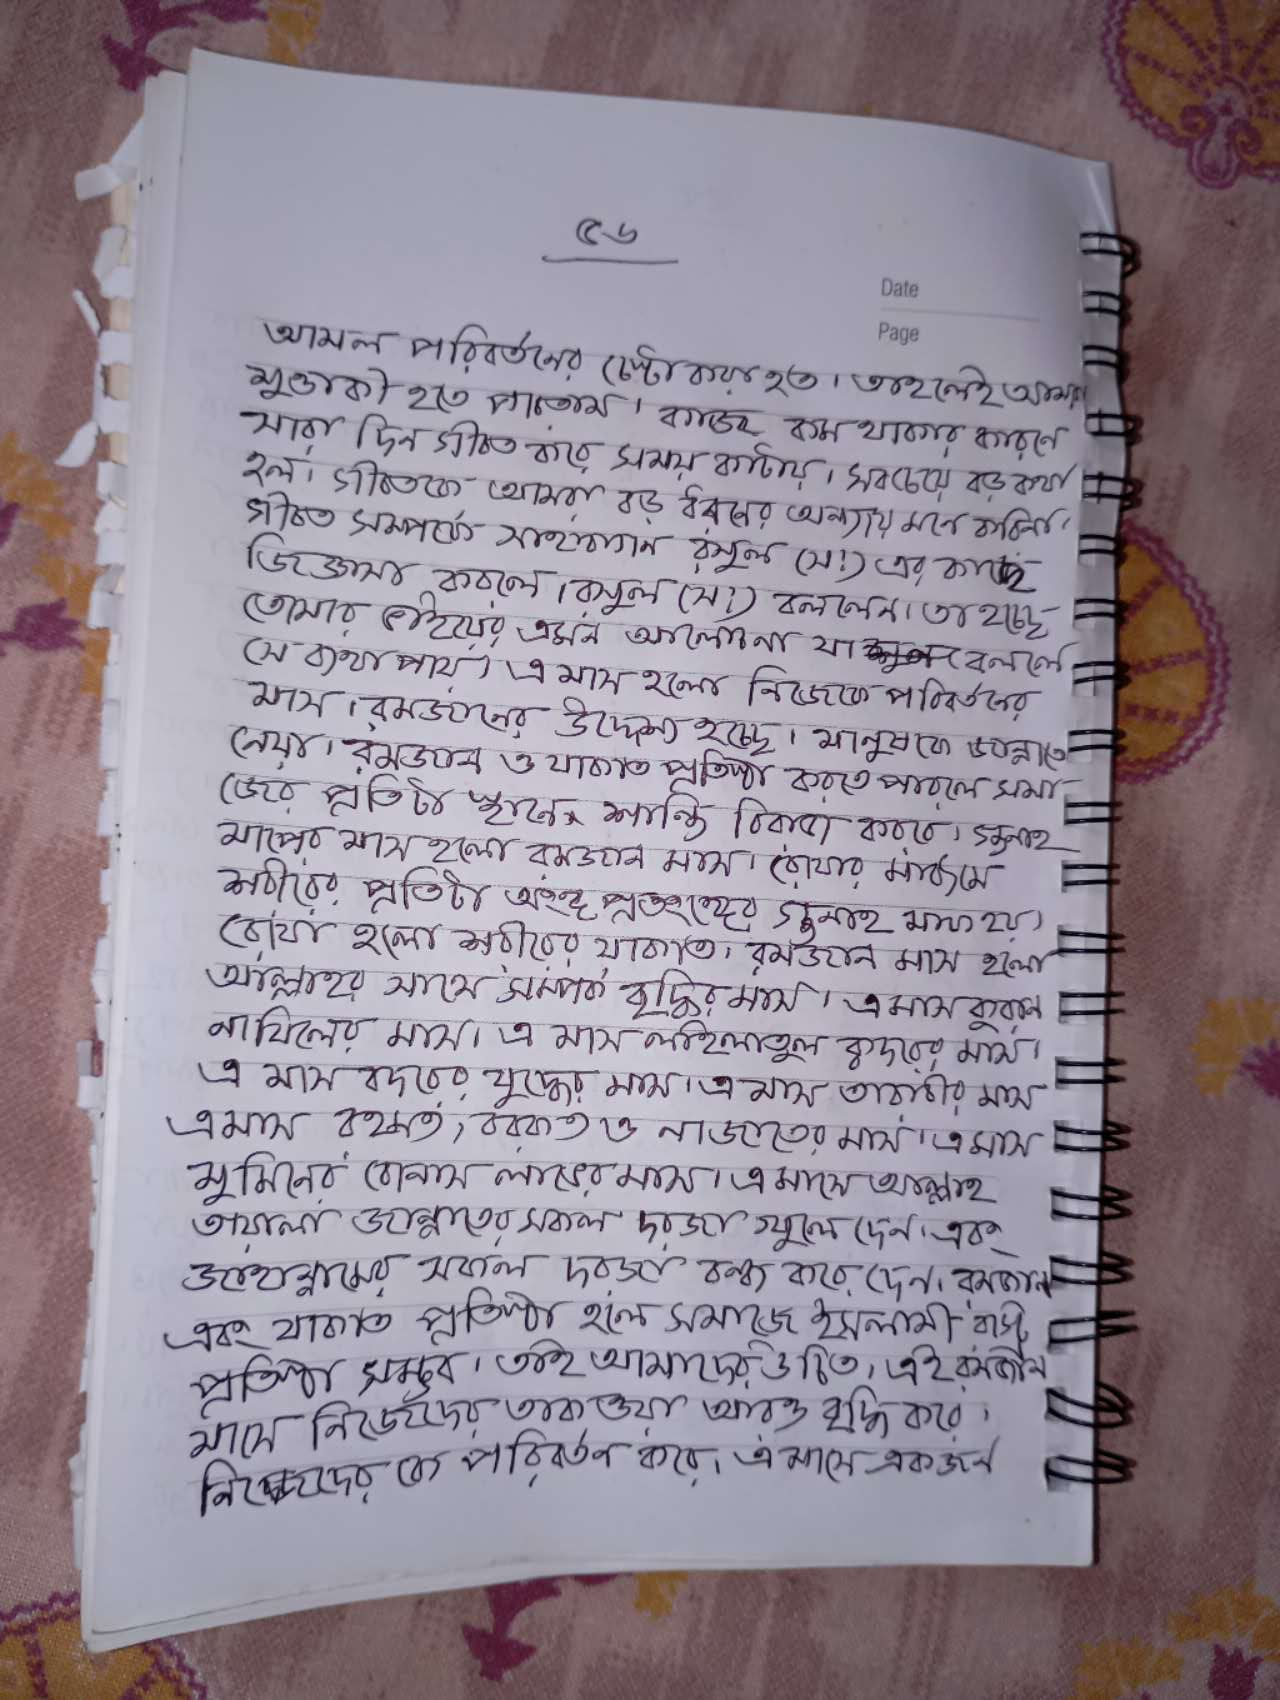 ৫৬
Date
Page
আমল পরিবর্তনের চেষ্টা করা হত। তাহলেই আমরা
মুত্তাকী হতে পারতাম। কাজে কম থাকার কারণে
সারা দিন গীবত করে সময় কাটায়। সবচেয়ে বড় কথা
হল। গীবতকে আমরা বড় ধরনের অন্যায় মনে করিনা।
গীবত সম্পর্কে সাহাবাগন রসুল (সাঃ) এর কাছে
জিজ্ঞাসা করলে। রসুল (সাঃ) বললেন। তা হচ্ছে
তোমার ভাইয়ের এমন আলোচনা যা বললে
সে ব্যথা পায়। এ মাস হলো নিজেকে পরিবর্তনের
মাস। রমজানের উদ্দেশ্য হচ্ছে। মানুষকে জান্নাতে
নেয়া। রমজান ও যাকাত প্রতিষ্ঠা করতে পারলে সমা
জের প্রতিটা স্থানে শান্তি বিরাজ করবে। গুনাহ
মাপের মাস হলো রমজান মাস। রোযার মাধ্যমে
শরীরের প্রতিটা অঙ্গ প্রতঙ্গের গুনাহ মাফ হয়।
রোযা হলো শরীরের যাকাত। রমজান মাস হলো
আল্লাহর সাথে সম্পর্ক বৃদ্ধির মাস। এ মাস কুরান
নাযিলের মাস। এ মাস লাইলাতুল ক্বদরের মাস।
এ মাস বদরের যুদ্ধের মাস। এ মাস তারাবীর মাস
এ মাস রহমত, বরকত ও নাজাতের মাস। এ মাস
মুমিনের বোনাস লাভের মাস। এ মাসে আল্লাহ
তায়ালা জান্নাতের সকল দরজা খুলে দেন। এবং
জাহান্নামের সকল দরজা বন্ধ করে দেন। রমজান
এবং যাকাত প্রতিষ্ঠা হলে সমাজে ইসলামী রাস্ট্র
প্রতিষ্ঠা সম্ভব। তাই আমাদের উচিত। এই রমজান
মাসে নিজেদের তাকওয়া আরও বৃদ্ধি করে।
নিজেদের কে পরিবর্তন করে। এ মাসে একজন